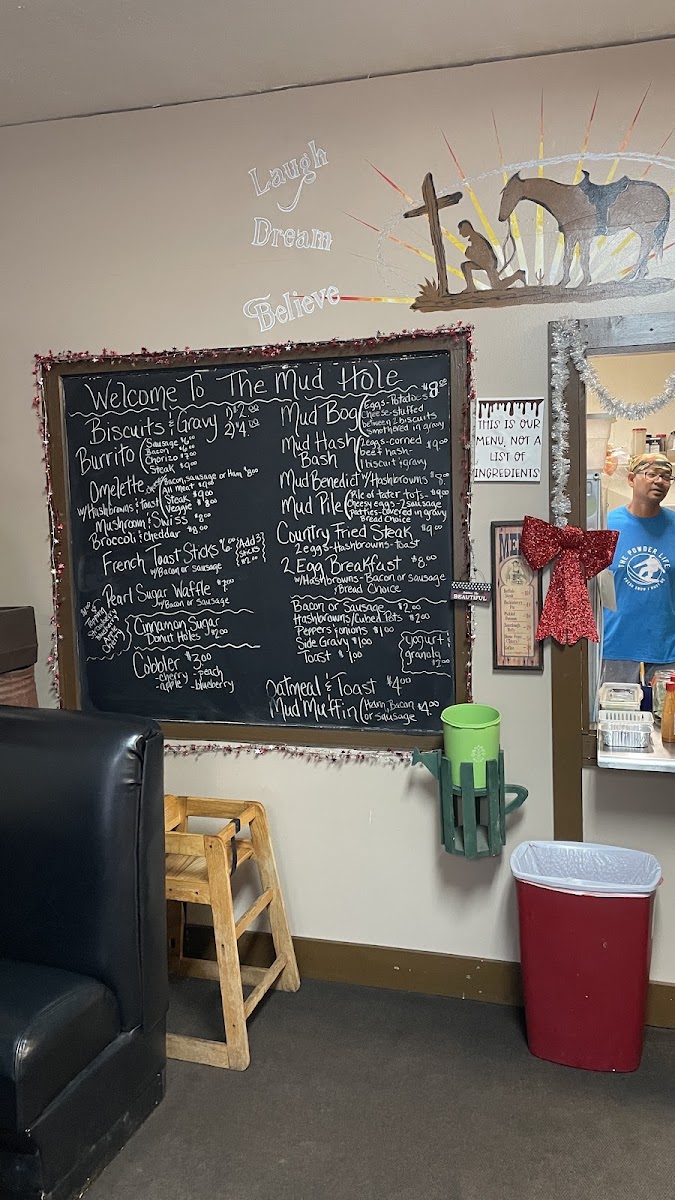 Laugh
Dream
Believe
Welcome To The Mud Hole
Biscuits & Gravy 1/$2.00
2/4.00
Burrito
Sausage $6.00
Bacon
Chorizo
Steak $9.00
Omelette
w/Hashbrowns & Toast
Bacon, sausage or Ham $8.00
All meat $9.00
Steak $9.00
Veggie $8.00
Mushroom & Swiss $8.00
Broccoli & cheddar $8.00
French Toast Sticks
w/Bacon or sausage
Add 3
sticks
$2.00
Pearl Sugar Waffle
w/Bacon or sausage
Topping
Strawberry
Cinnamon Sugar
Donut Holes $2.00
Cobbler $3.00
-cherry -peach
-apple -blueberry
Mud Bog
Eggs-Potatoes
cheese-stuffed
between 2 biscuits
smothered in gravy
Mud Hash
Bash
2eggs-corned
beef hash-
1 biscuit & gravy
$9.00
Mud Benedict w/Hashbrowns
Mud Pile
Pile of tater-tots-
cheesey eggs-2 sausage
patties-covered in gravy
Bread Choice
$9.00
Country Fried Steak $9.00
2eggs-Hashbrowns-toast
2 Egg Breakfast $8.00
w/Hashbrowns-Bacon or sausage
Bread Choice
Bacon or Sausage $2.00
Hashbrowns/Cubed Pots $2.00
Peppers & onions $1.00
Side Gravy $1.00
Toast $1.00
yogurt &
granola
$2.00
Oatmeal & Toast $4.00
Mud Muffin
Ham, Bacon
or sausage
$4.00
THIS IS OUR
MENU, NOT A
LIST OF
INGREDIENTS
BEAUTIFUL
MENU
THE POWDER LIFE